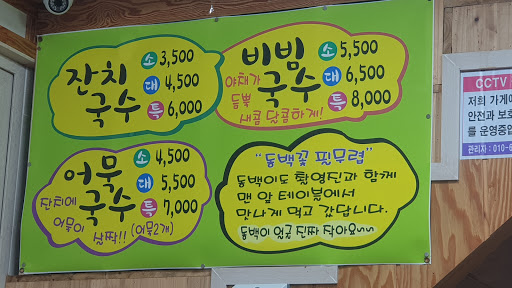 잔치
국수
소 3,500
대 4,500
특 6,000
비빔
국수
야채가
듬뿍
새콤 달콤하게!
소 5,500
대 6,500
특 8,000
어묵
국수
잔치에
어묵이
살짝!! (어묵2개)
소 4,500
대 5,500
특 7,000
"동백꽃 필무렵"
동백이도 촬영진과 함께
맨 앞 테이블에서
맛나게 먹고 갔답니다.
동백이 얼굴 진짜 작아요~~
CCTV
저희 가게
안전과 보호
를 운영중입
관리자 : 010-6